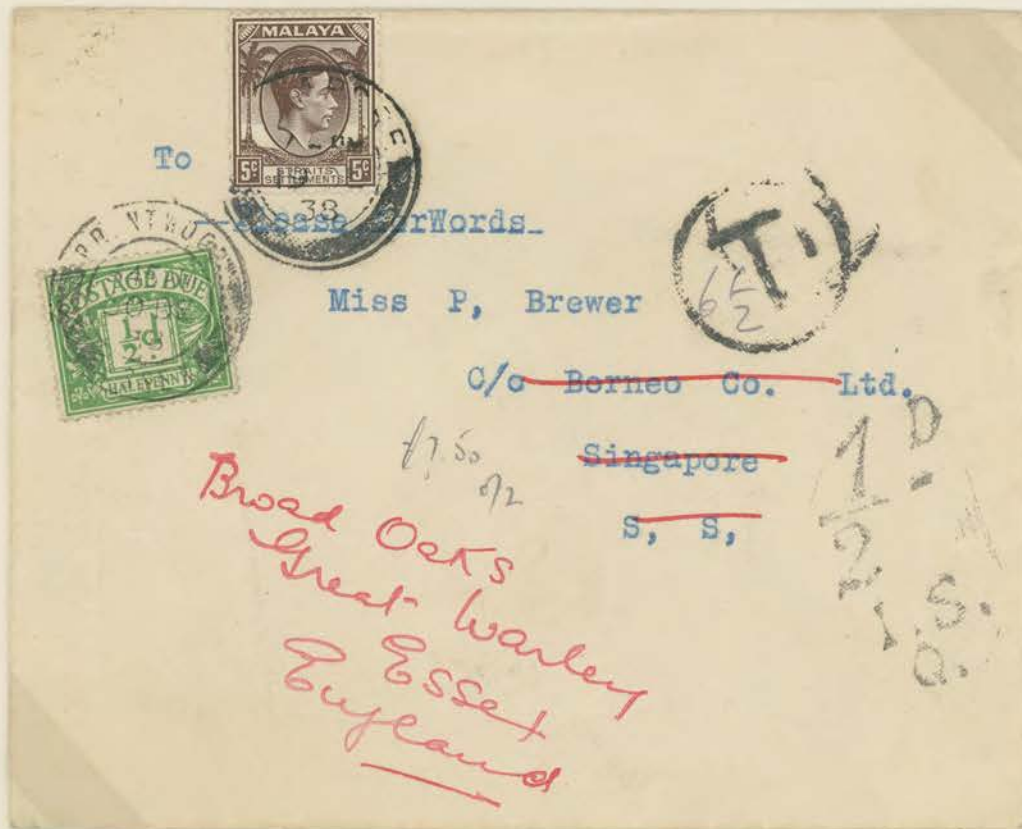 MALAYA
5c STRAITS SETTLEMENTS 5c
38
To
Please ForWords_
POSTAGE DUE
1/2 d.
HALFPENNY
Miss P, Brewer
T.
6 1/2
C/o Borneo Co. Ltd.
Singapore
S, S,
£7.50
1/2 D
I.S.
Broad Oaks
Great Warley
Essex
England